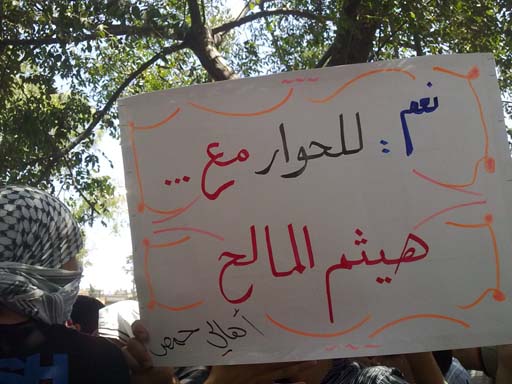 نعم : للحوار مع ...
هيثم المالح
أهالي حمص